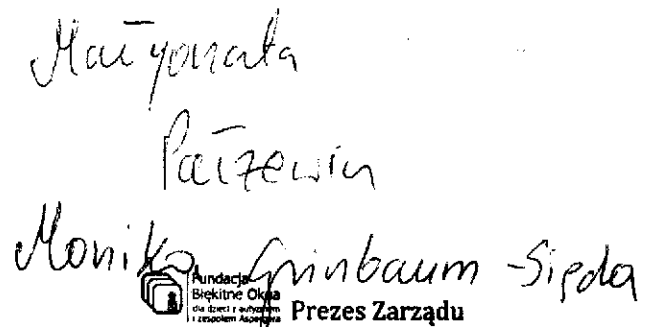 Małgorzata
Monika Grinbaum-Sięda
Fundacja
Błękitne Okna
dla dzieci z autyzmem
i zespołem Aspergera
Prezes Zarządu